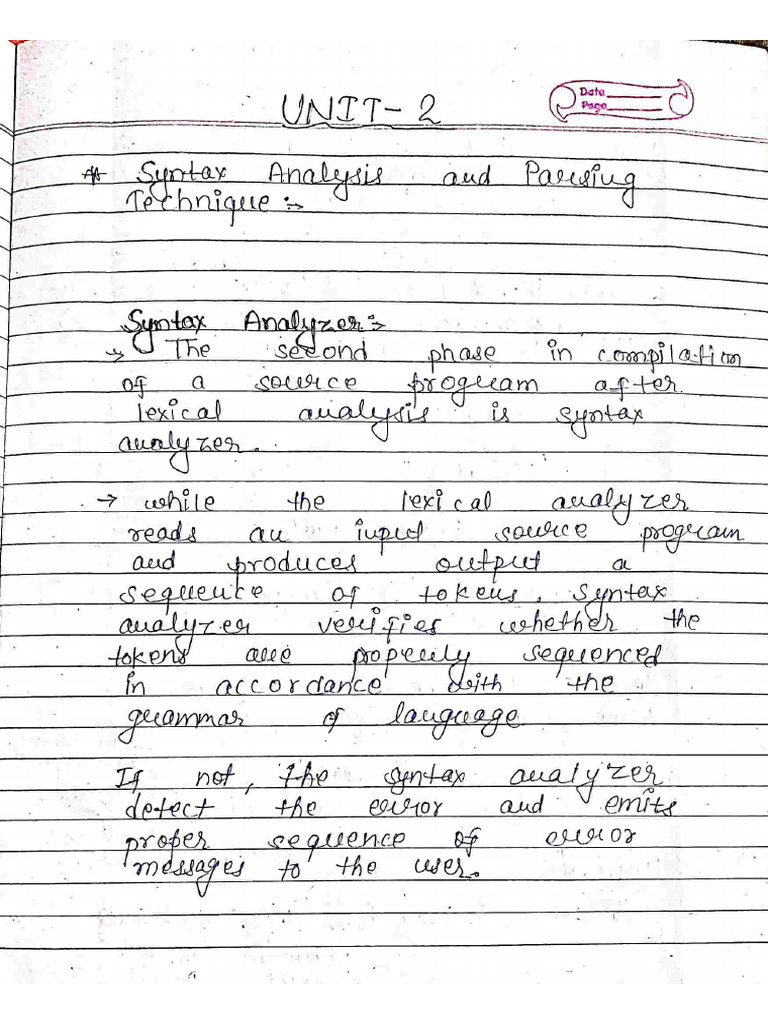 UNIT- 2
Date
Page
* Syntax Analysis and Parsing
Technique :-
Syntax Analyzer :-
→ The second phase in compilation
of a source program after
lexical analysis is syntax
analyzer.
→ while the lexical analyzer
reads an input source program
and produces output a
sequence of tokens, syntax
analyzer verifies whether the
tokens are properly sequenced
in accordance with the
grammar of language
If not, the syntax analyzer
detect the error and emits
proper sequence of error
messages to the user.